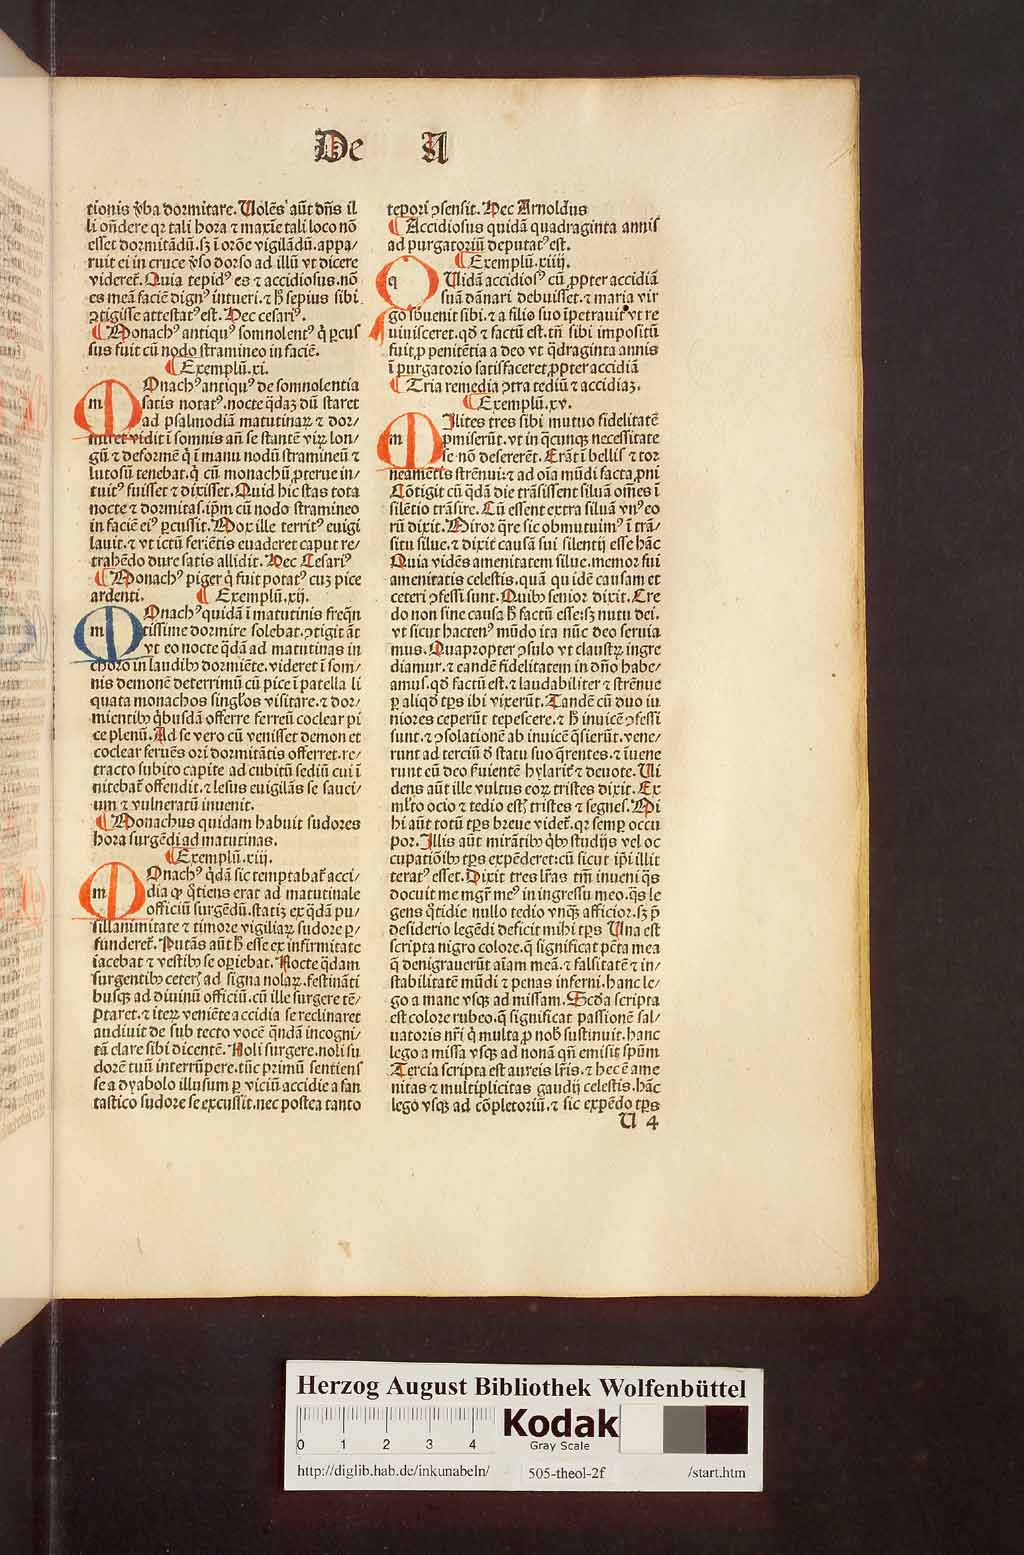 De A
tionis v̄ba dormitare. Uolēs aūt dn̄s il
li on̄dere qꝛ tali hora ⁊ maxīe tali loco nō
esset dormitādū. sꝫ ī orōe vigilādū. appa⸗
ruit ei in cruce v̄so dorso ad illū vt dicere
videret᷑. Quia tepidꝰ es ⁊ accidiosus. nō
es meā faciē dignꝰ intueri. ⁊ h̄ sepius sibi
ↄtigisse attestatꝰ est. Hec cesariꝰ.
¶ Monachꝰ antiquꝰ somnolentꝰ q̇ ꝑcus
sus fuit cū nodo stramineo in faciē.
¶ Exemplū. xi.
m Onachꝰ antiqꝰ de somnolentia
satis notatꝰ. nocte q̄daꝫ dū staret
ad psalmodiā matutinaꝝ ⁊ dor⸗
miret vidit ī somnis an̄ se stantē viꝝ lon⸗
gū ⁊ deformē q̇ ī manu nodū stramineū ⁊
lutosū tenebat. q̇ cū monachū ꝓterue in⸗
tuitꝰ fuisset ⁊ dixisset. Quid hic stas tota
nocte ⁊ dormitas. ip̄m cū nodo stramineo
in faciē eiꝰ ꝑcussit. Mox ille territꝰ euigi
lauit. ⁊ vt ictū feriētis euaderet caput re⸗
trahēdo dure satis allidit. Hec Cesariꝰ
¶ Monachꝰ piger q̇ fuit potatꝰ cuꝫ pice
ardenti. ¶ Exemplū. xij.
m Onachꝰ quidā ī matutinis freq̄n
tissime dormire solebat. ↄtigit āt
vt eo nocte q̄dā ad matutinas in
choro in laudibꝫ dormiēte. videret ī som⸗
nis demonē deterrimū cū pice ī patella li
quata monachos singl̓os visitare. ⁊ dor⸗
mientibꝫ q̇busdā offerre ferreū coclear pi
ce plenū. Ad se vero cū venisset demon et
coclear feruēs ori dormitātis offerret. re⸗
tracto subito capite ad cubitū sediū cui ī
nitebat᷑ offendit. ⁊ lesus euigilās se sauci⸗
um ⁊ vulneratū inuenit.
¶ Monachus quidam habuit sudores
hora surgēdi ad matutinas.
¶ Exemplū. xiij.
m Onachꝰ q̇dā sic temptabat᷑ acci⸗
dia ꝙ q̇tiens erat ad matutinale
officiū surgēdū. statiꝫ ex q̇dā pu⸗
sillanimitate ⁊ timore vigiliaꝝ sudore ꝑ⸗
funderet᷑. Putās aūt h̄ esse ex infirmitate
iacebat ⁊ vestibꝫ se oꝑiebat. Nocte q̇dam
surgentibꝫ ceteris ad signa nolaꝝ. festināti
busqꝫ ad diuinū officiū. cū ille surgere tē⸗
ptaret. ⁊ iteꝝ veniēte accidia se reclinaret
audiuit de sub tecto vocē q̄ndā incogni⸗
tā clare sibi dicentē. Noli surgere. noli su
dorē tuū interrūpere. tūc primū sentiens
se a dyabolo illusum ꝑ viciū accidie a fan
tastico sudore se excussit. nec postea tanto
tepori ↄsensit. Hec Arnoldus
¶ Accidiosus quidā quadraginta annis
ad purgatoriū deputatꝰ est.
¶ Exemplū. xiiij.
q Uidā accidiosꝰ cū ꝓpter accidiā
suā dānari debuisset. ⁊ maria vir
go sb̄uenit sibi. ⁊ a filio suo īpetrauit vt re
uiuisceret. qd̄ ⁊ factū est. tn̄ sibi impositū
fuit ꝓ penitētia a deo vt q̄draginta annis
ī purgatorio satisfaceret ꝓpter accidiā
¶ Tria remedia ↄtra tediū ⁊ accidiaꝫ.
¶ Exemplū. xv.
m Ilites tres sibi mutuo fidelitatē
ꝓmiserūt. vt in q̄cunqꝫ necessitate
se nō desererēt. Erāt ī bellis ⁊ tor
neamētis strēnui: ⁊ ad oīa mūdi facta ꝓni
Cōtigit cū q̄dā die trāsissent siluā om̄es ī
silētio trāsire. Cū essent extra siluā vnꝰ eo
rū dixit. Miror q̄re sic obmutuimꝰ ī trā⸗
situ silue. ⁊ dixit causā sui silentij esse hāc
Quia vidēs amenitatem silue. memor fui
amenitatis celestis. quā quidē causam et
ceteri ↄfessi sunt. Quibꝫ senior dixit. Cre
do non sine causa h̄ factū esse: sꝫ nutu dei.
vt sicut hactenꝰ mūdo ita nūc deo seruia
mus. Quapropter ↄsulo vt claustꝝ ingre
diamur. ⁊ eandē fidelitatem in dn̄o habe⸗
amus. qd̄ factū est. ⁊ laudabiliter ⁊ strēnue
ꝑ aliqd̄ tꝑs ibi vixerūt. Tandē cū duo iu
niores ceperūt tepescere. ⁊ h̄ inuicē ↄfessi
sunt. ⁊ ↄsolationē ab inuicē q̄sierūt. vene⸗
runt ad terciū d̄ statu suo q̄rentes. ⁊ īuene
runt eū deo ẜuientē hylarit᷑ ⁊ deuote. Ui
dens aūt ille vultus eoꝝ tristes dixit. Ex
ml̓to ocio ⁊ tedio estis tristes ⁊ segnes. Mi
hi aūt totū tꝑs breue videt᷑. qꝛ semꝑ occu
por. Illis aūt mirātibꝫ q̇bꝫ studijs vel oc
cupatiōibꝫ tꝑs expēderet: cū sicut ip̄i illit
teratꝰ esset. Dixit tres lr̄as tm̄ inueni q̄s
docuit me mgr̄ meꝰ in ingressu meo. q̄s le
gens q̇tidie nullo tedio vnqꝫ afficior. sꝫ p̄
desiderio legēdi deficit mihi tꝑs Una est
scripta nigro colore. q̄ significat pctā mea
q̄ denigrauerūt aīam meā. ⁊ falsitatē ⁊ in⸗
stabilitatē mūdi ⁊ penas inferni. hanc le⸗
go a mane vsqꝫ ad missam. Scd̄a scripta
est colore rubeo. q̄ significat passionē sal⸗
uatoris nr̄i q̇ multa ꝓ nob̄ sustinuit. hanc
lego a missa vsqꝫ ad nonā qn̄ emisit spūm
Tercia scripta est aureis lr̄is. ⁊ hec ē ame
nitas ⁊ multiplicitas gaudij celestis. hāc
lego vsqꝫ ad cōpletoriū. ⁊ sic expēdo tꝑs
U 4
Herzog August Bibliothek Wolfenbüttel
0 1 2 3 4
Kodak
Gray Scale
http://diglib.hab.de/inkunabeln/ 505-theol-2f /start.htm